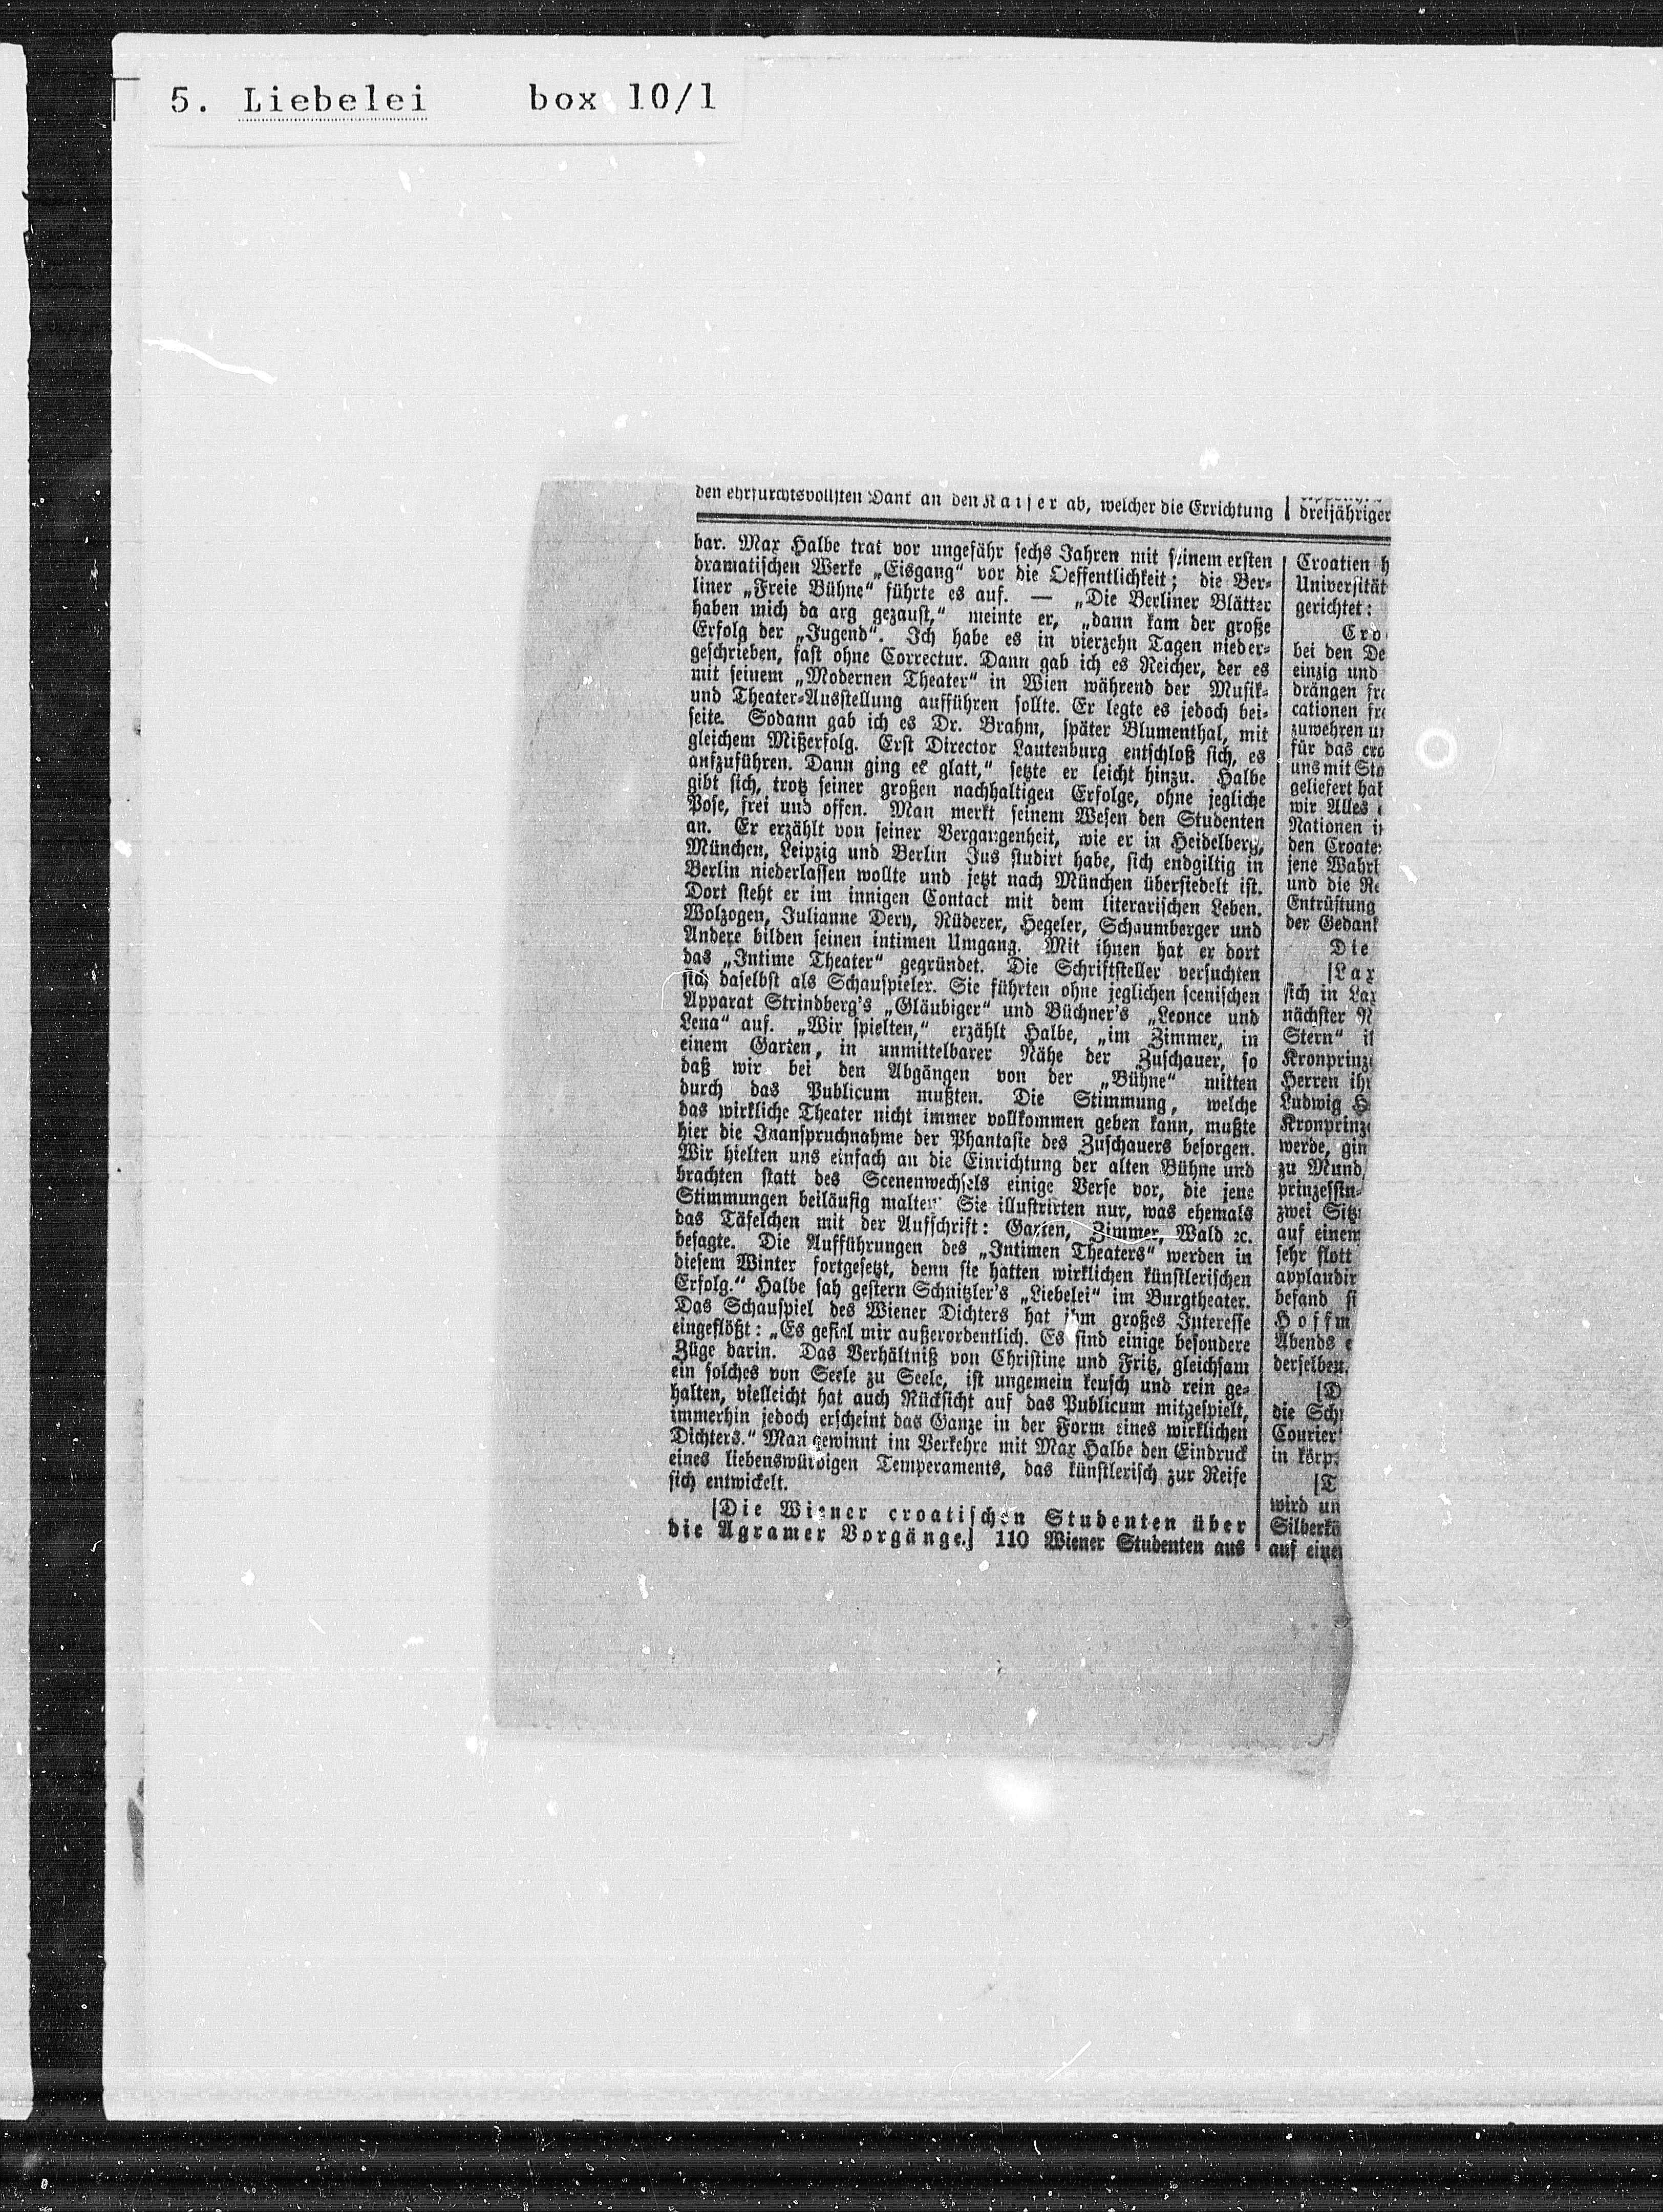 5. Liebelei box 10/1
den ehrfurchtsvollsten Dank an den Kaiser ab, welcher die Errichtung
bar. Max Halbe trat vor ungefähr sechs Jahren mit seinem ersten
dramatischen Werke „Eisgang“ vor die Oeffentlichkeit; die Ber-
liner „Freie Bühne“ führte es auf. — „Die Berliner Blätter
haben mich da arg gezaust,“ meinte er, „dann kam der große
Erfolg der „Jugend“. Ich habe es in vierzehn Tagen nieder-
geschrieben, fast ohne Correctur. Dann gab ich es Reicher, der es
mit seinem „Modernen Theater“ in Wien während der Musik-
und Theater-Ausstellung aufführen sollte. Er legte es jedoch bei-
seite. Sodann gab ich es Dr. Brahm, später Blumenthal, mit
gleichem Mißerfolg. Erst Director Lautenburg entschloß sich, es
aufzuführen. Dann ging es glatt,“ setzte er leicht hinzu. Halbe
gibt sich, trotz seiner großen nachhaltigen Erfolge, ohne jegliche
Pose, frei und offen. Man merkt seinem Wesen den Studenten
an. Er erzählt von seiner Vergangenheit, wie er in Heidelberg,
München, Leipzig und Berlin Jus studirt habe, sich endgiltig in
Berlin niederlassen wollte und jetzt nach München übersiedelt ist.
Dort steht er im innigen Contact mit dem literarischen Leben.
Wolzogen, Julianne Dery, Rüderer, Hegeler, Schaumberger und
Andere bilden seinen intimen Umgang. Mit ihnen hat er dort
das „Intime Theater“ gegründet. Die Schriftsteller versuchten
sich daselbst als Schauspieler. Sie führten ohne jeglichen scenischen
Apparat Strindberg's „Gläubiger“ und Büchner's „Leonce und
Lena“ auf. „Wir spielten,“ erzählt Halbe, „im Zimmer, in
einem Garten, in unmittelbarer Nähe der Zuschauer, so
daß wir bei den Abgängen von der „Bühne“ mitten
durch das Publicum mußten. Die Stimmung, welche
das wirkliche Theater nicht immer vollkommen geben kann, mußte
hier die Inanspruchnahme der Phantasie des Zuschauers besorgen.
Wir hielten uns einfach an die Einrichtung der alten Bühne und
brachten statt des Scenenwechsels einige Verse vor, die jene
Stimmungen beiläufig malten. Sie illustrirten nur, was ehemals
das Täfelchen mit der Aufschrift: Garten, Zimmer, Wald ꝛc.
besagte. Die Aufführungen des „Intimen Theaters“ werden in
diesem Winter fortgesetzt, denn sie hatten wirklichen künstlerischen
Erfolg.“ Halbe sah gestern Schnitzler's „Liebelei“ im Burgtheater.
Das Schauspiel des Wiener Dichters hat ihm großes Interesse
eingeflößt: „Es gefiel mir außerordentlich. Es sind einige besondere
Züge darin. Das Verhältniß von Christine und Fritz, gleichsam
ein solches von Seele zu Seele, ist ungemein keusch und rein ge-
halten, vielleicht hat auch Rücksicht auf das Publicum mitgespielt,
immerhin jedoch erscheint das Ganze in der Form eines wirklichen
Dichters.“ Man gewinnt im Verkehre mit Max Halbe den Eindruck
eines liebenswürdigen Temperaments, das künstlerisch zur Reife
sich entwickelt.
[Die Wiener croatischen Studenten über
die Agramer Vorgänge.] 110 Wiener Studenten aus
dreijähriger
Croatien h
Universität
gerichtet:
Cro
bei den De
einzig und
drängen fre
cationen fre
zuwehren un
für das cro
uns mit Sto
geliefert hat
wir Alles
Nationen in
den Croate
jene Wahrh
und die Re
Entrüstung
der Gedank
Die
[Lax
sich in Lax
nächster N
Stern“ i
Kronprinze
Herren ihr
Ludwig H
Kronprinze
werde, gin
zu Mund,
prinzessin-
zwei Sitz
auf einem
sehr flott
applaudir
befand si
Hoffm
Abends e
derselben,
[D
die Schr
Courier
in körp
[T
wird un
Silberkö
auf einer